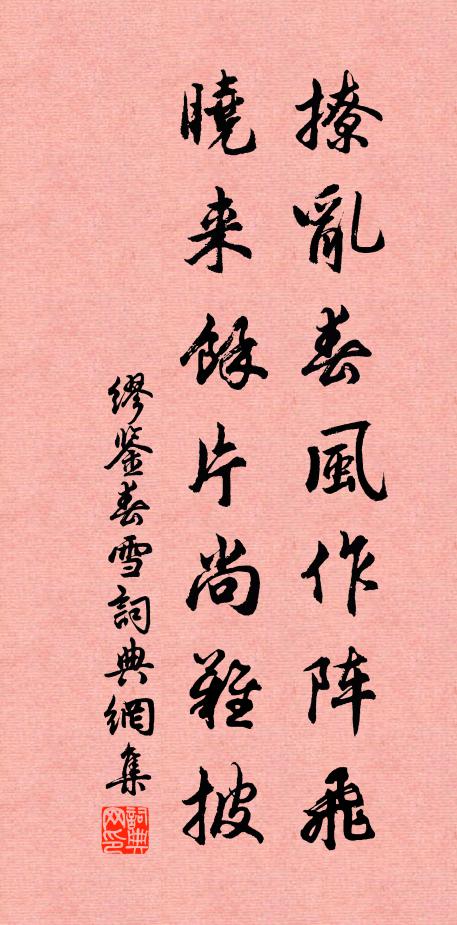 撩亂春風作阵飛
曉来餘片尚難披
繆鉴春雪詞典網集
詞典网印